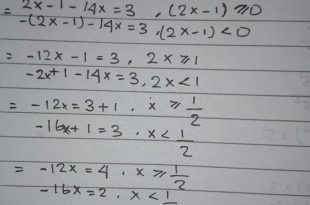 = 2x-1-14x=3, (2x-1) ⩾0
-(2x-1)-14x=3, (2x-1) <0
= -12x-1=3, 2x ⩾1
-2x+1-14x=3, 2x<1
= -12x=3+1. x ⩾ 1/2
-16x+1=3. x< 1/2
= -12x=4. x ⩾ 1/2
-16x=2. x< 1/2